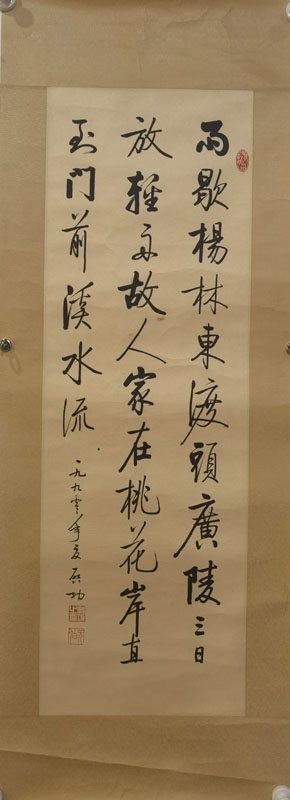 雨歇楊林東渡頭廣陵三日
放輕舟故人家在桃花岸直
到門前溪水流
一九九零年夏啟功